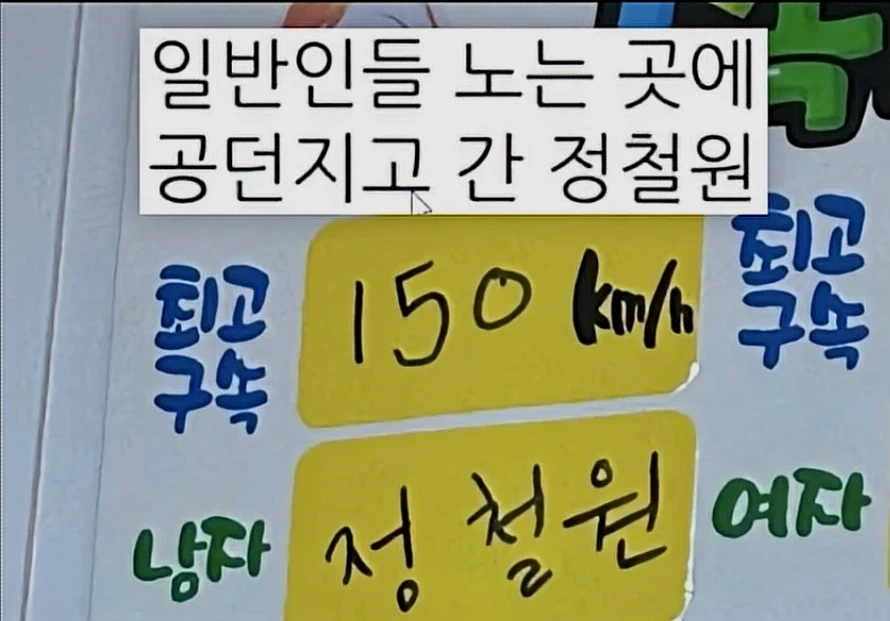 일반인들 노는 곳에
공던지고 간 정철원
최고
구속
150 km/h
최고
구속
남자
정철원
여자